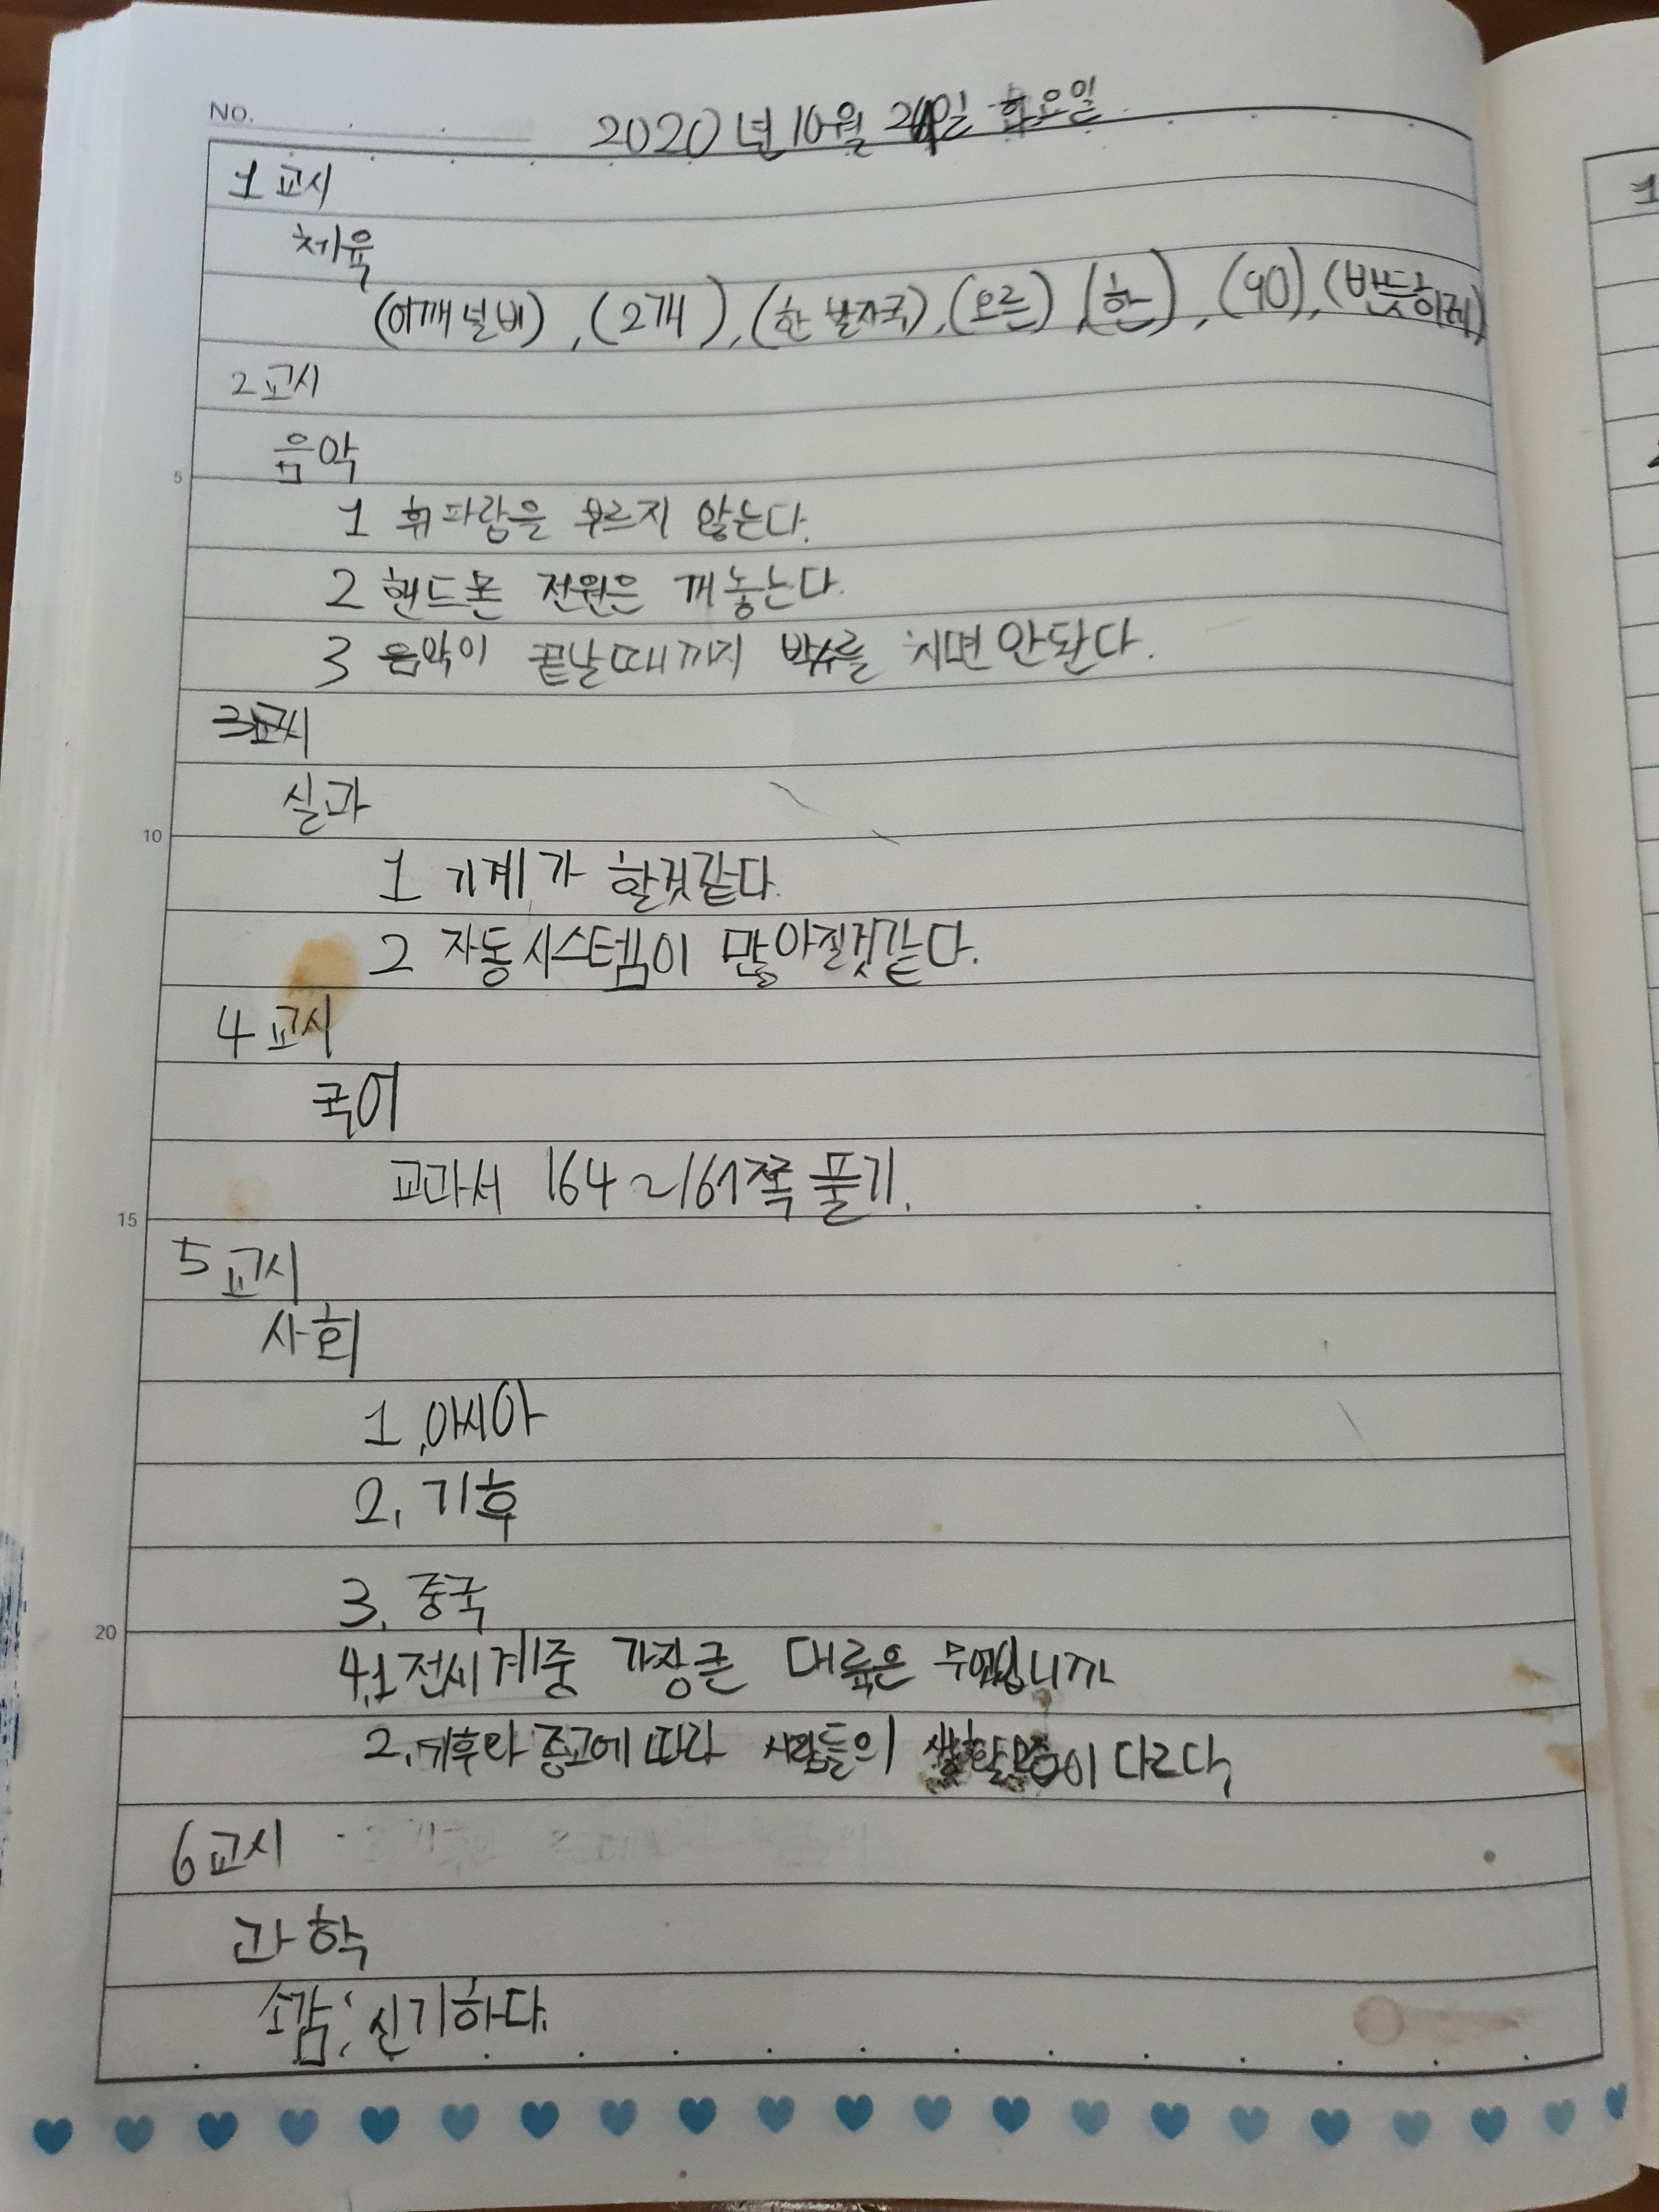 No.
2020년 10월 일 화요일
1교시
체육
(어깨 널비), (2개), (한 발자국), (오른), (한), (90), (반듯하게)
2교시
음악
1 휘파람을 부르지 않는다.
2 핸드폰 전원은 꺼놓는다.
3 음악이 끝날때까지 박수를 치면 안돤다.
3교시
실과
1 기계가 할것같다.
2 자동시스템이 많아질것같다.
4교시
국어
교과서 164~167쪽 풀기.
5교시
사회
1. 아시아
2. 기후
3. 중국
4.1 전세계중 가장큰 대륙은 무엇입니까
2. 기후와 종교에 따라 사람들의 생활모습이 다르다.
6교시
과학
소감: 신기하다.
5
10
15
20
1